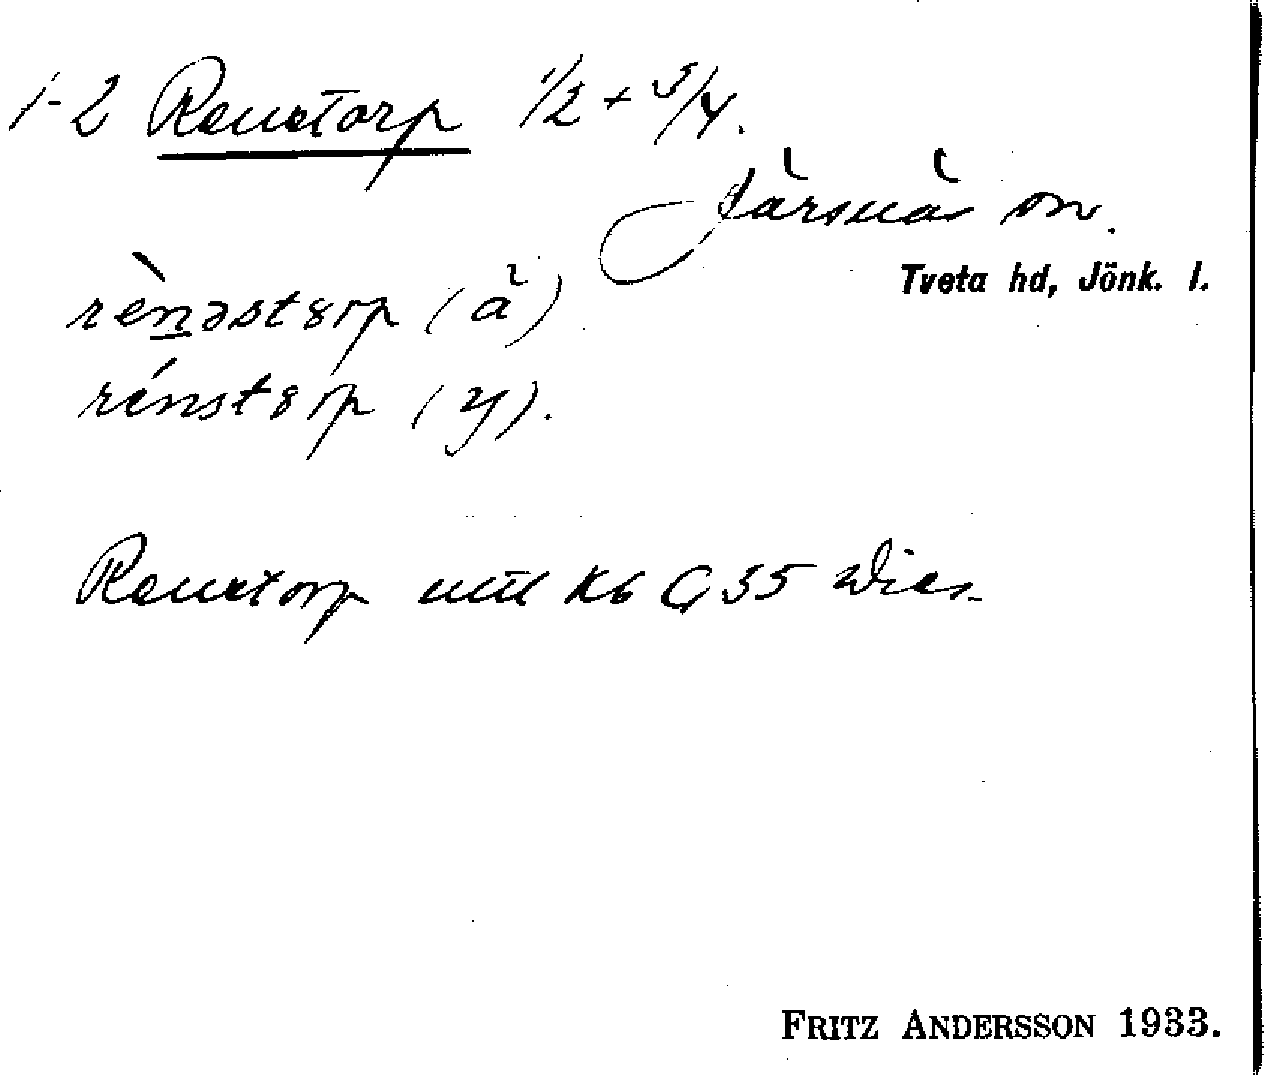 1-2 Renstorp 1/2 + 3/4.
Järsnäs sn.
Tveta hd, Jönk. l.
rènəstorp (ä)
rénstorp (y).
Renstorp Kb G 35
FRITZ ANDERSSON 1933.